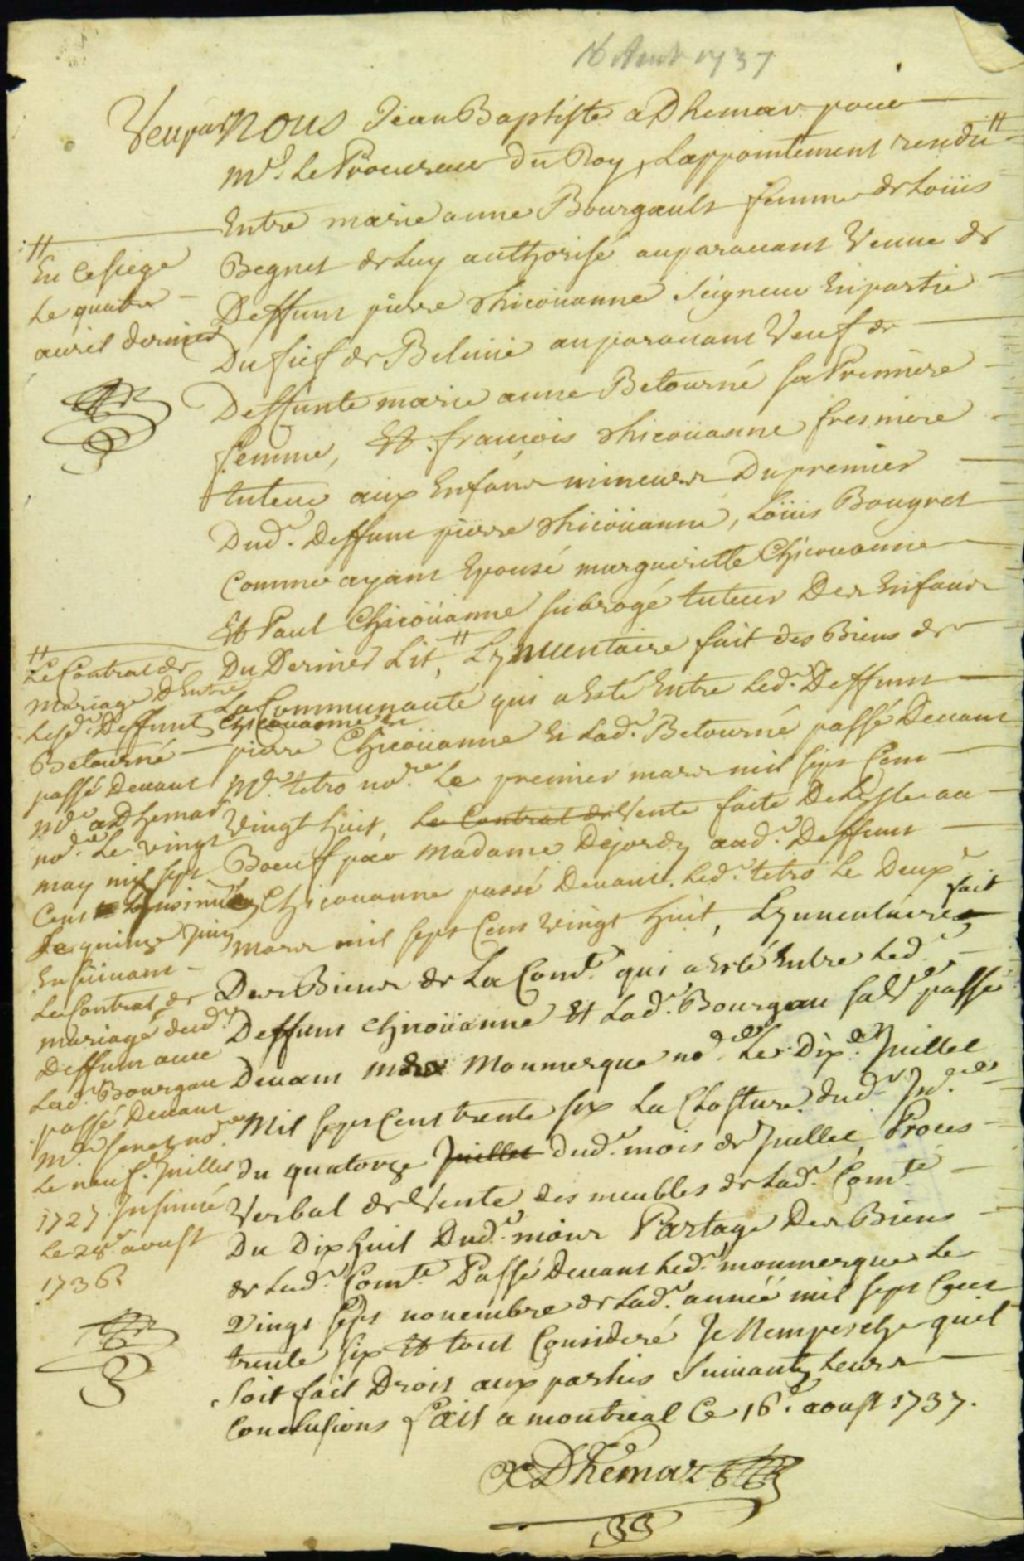 16 Aout 1737
Veu par nous Jean Baptiste aDhemar pour
Mr. Le Procureur du Roy, Lappointement rendu #
Entre marie anne Bourgault femme de Loüis
Begnet de luy authorisé auparauant Veuue de
Deffunt pierre Chicoüanne Seigneur En partie
Du fief de Beluüe auparauant Veuf de
Deffunte marie anne Betourné sa Premiere
femme, Et françois Chicoüanne fresniere
tuteur aux Enfans mineurs Du premier
Dud. Deffunt pierre Chicoüanne, Loüis Bougret
Comme ayant Epousé margueritte Chicouanne
Et Paul Chicoüanne subrogé tuteur Des Enfans
Du Dernier Lit, # Lynuentaire fait des Biens de
La Communauté qui a Esté Entre Led. Deffunt
pierre Chicoüanne Et Lad. Betourné passé Deuant
Me. tetro nore. Le premier mars mil sept Cent
Vingt huit, Le Contrat de Vente faite De Lysle au
Boeuf par Madame Dejordy aud. Deffunt
Chicouanne passé Deuant Led. tetro Le Deuxe
mars mil sept Cent vingt huit, Lynuentaire fait
Des Biens de La Comté. qui a Esté Entre Led.
Deffunt Chicoüanne Et Lad. Bourgau passé
Deuant Me Monmerque nore. Le Dixe. Juillet
Mil sept Cent trente six La Closture dud. Inre.
du quatorze Juillet dud. mois de Juillet, Proces
Verbal de Vente des meubles de Lad. Comté
Du Dix huit Dud. mois Partage Des Biens
de Lad. Comté Passé Deuant Led. monmerque Le
Vingt sept nouembre de Lad. année mil sept Cent
trente six Et tout Consideré Je Nempesche quil
soit fait Droit aux parties Suiuant Leurs
Conclusions fait a montreal Ce 16e. aoust 1737.
aDhemar
#
En Ce siege
Le quatre
auril dernier
#
Le Contrat de
mariage D'Entre
Led. Deffunt Chicouanne Et
Betourné
passé Deuant
Me. aDhemar
nore. Le vingt
may mil sept
Cent Insinué
Le quinze Juin
Ensuiuant
Le Contrat de
mariage dud.
Deffunt auec
Lad. Bourgau
passé Deuant
Me. Senet nore.
Le neuf. Juillet
1727. Insinué
Le 28e aoust
1736